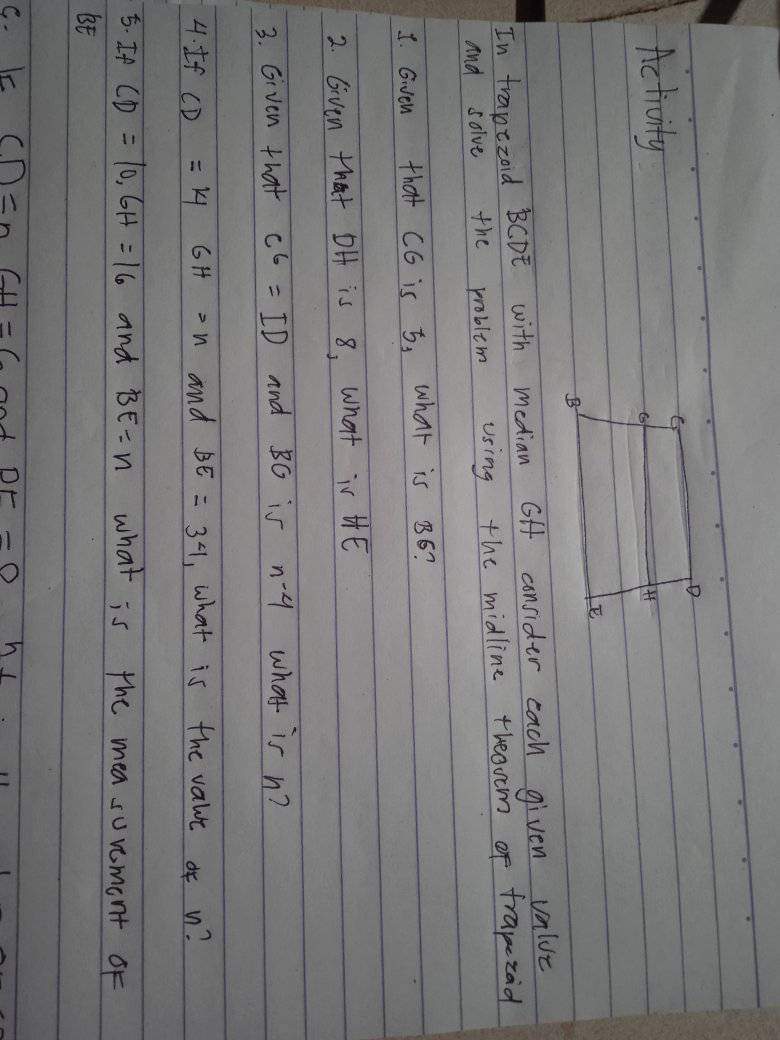 Activity
C D
G H
B E
In trapezoid BCDE with median GH consider each given value
and solve the problem using the midline theorem of trapezoid
1. Given that CG is 5, what is BG?
2. Given that DH is 8, what is HE
3. Given that CG = ID and BG is n-4 what is n?
4. If CD = 14 GH = n and BE = 34, what is the value of n?
5. If CD = 10, GH = 16 and BE = n what is the measurement of
BE
CD = n GH = 6 and